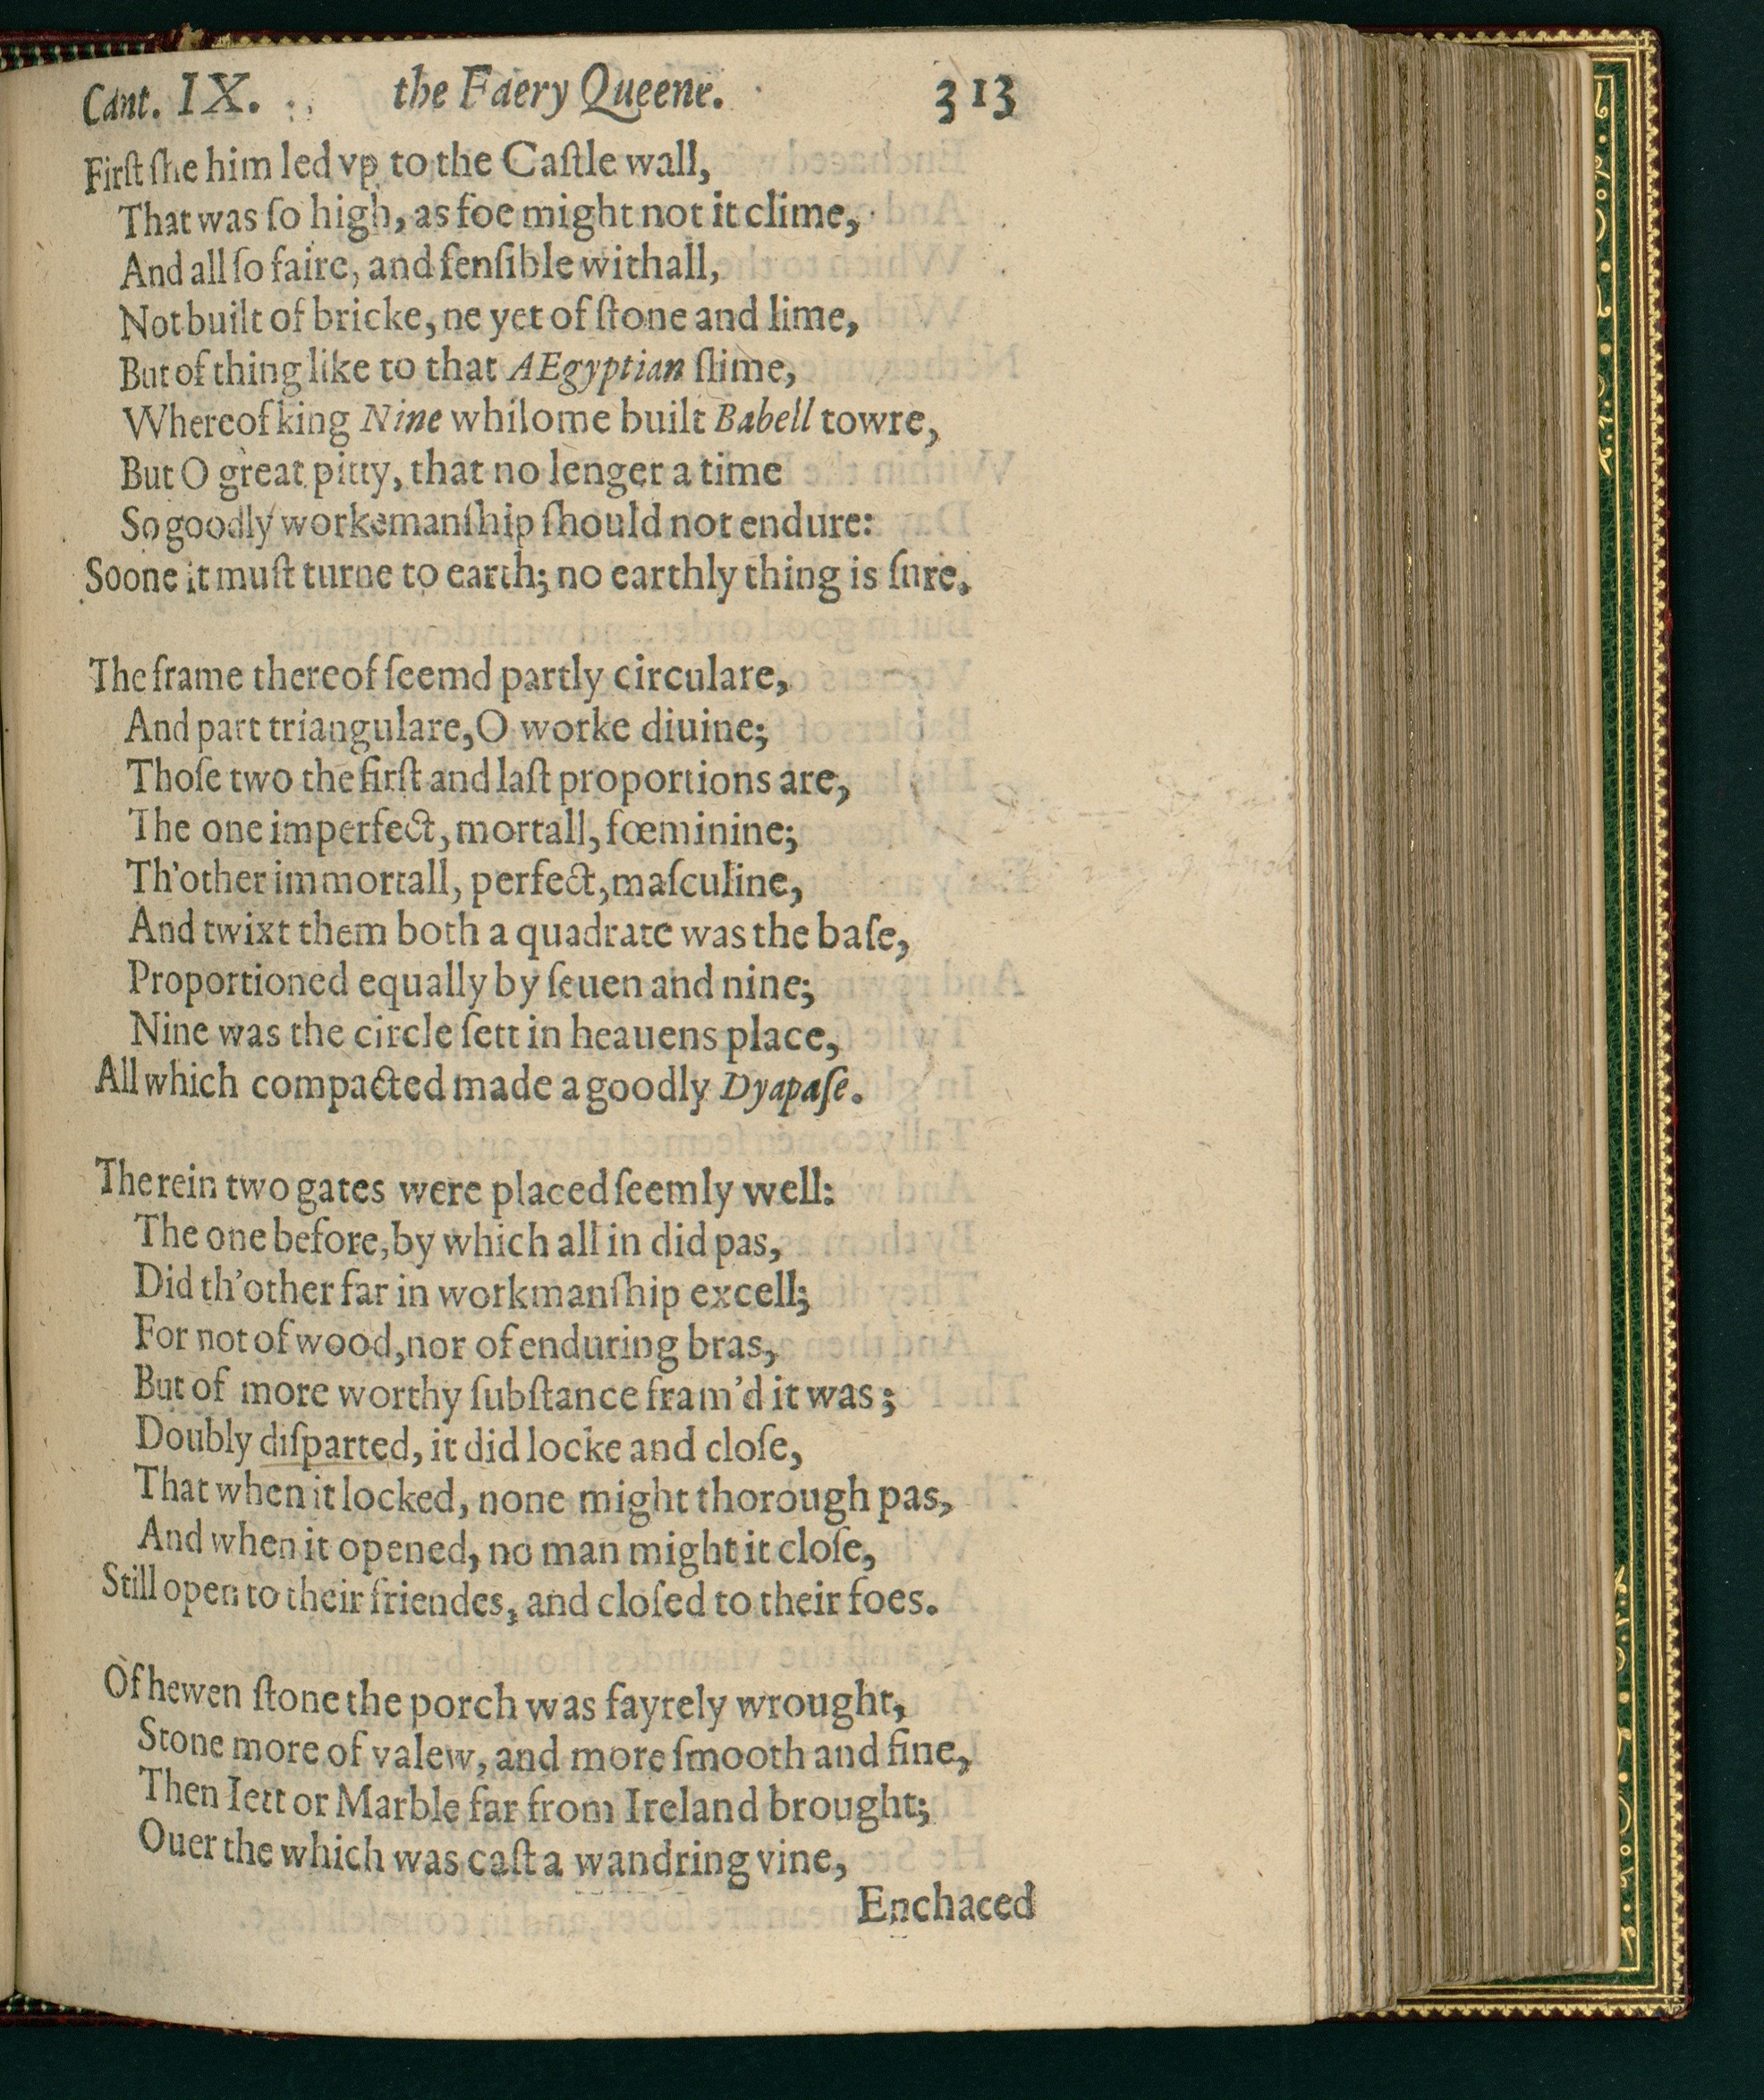 Cant. IX. the Faery Queene. 313
Firſt ſhe him led vp to the Caſtle wall,
That was ſo high, as foe might not it clime,
And all ſo faire, and fenſible withall,
Not built of bricke, ne yet of ſtone and lime,
But of thing like to that AEgyptian ſlime,
Whereof king Nine whilome built Babell towre,
But O great pitty, that no lenger a time
So goodly workemanſhip ſhould not endure:
Soone it muſt turne to earth; no earthly thing is ſure.
The frame thereof ſeemd partly circulare,
And part triangulare, O worke diuine;
Thoſe two the firſt and laſt proportions are,
The one imperfect, mortall, fœminine;
Th'other immortall, perfect, maſculine,
And twixt them both a quadrate was the baſe,
Proportioned equally by ſeuen and nine;
Nine was the circle ſett in heauens place,
All which compacted made a goodly Dyapaſe.
Therein two gates were placed ſeemly well:
The one before, by which all in did pas,
Did th'other far in workmanſhip excell;
For not of wood, nor of enduring bras,
But of more worthy ſubſtance fram'd it was;
Doubly diſparted, it did locke and cloſe,
That when it locked, none might thorough pas,
And when it opened, no man might it cloſe,
Still open to their friendes, and cloſed to their foes.
Of hewen ſtone the porch was fayrely wrought,
Stone more of valew, and more ſmooth and fine,
Then Iett or Marble far from Ireland brought;
Ouer the which was caſt a wandring vine,
Enchaced